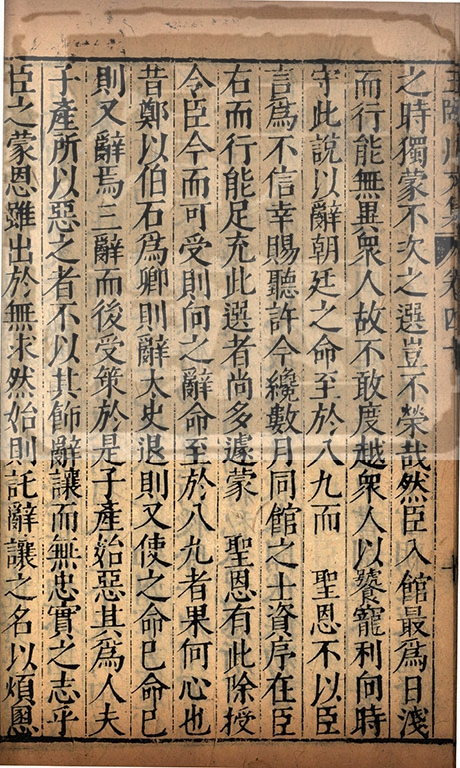 之時獨蒙不次之選豈不榮哉然臣入館最爲日淺
而行能無異衆人故不敢度越衆人以饕寵利向時
守此說以辭朝廷之命至於八九而　聖恩不以臣
言爲不信幸賜聽許今纔數月同館之士資序在臣
右而行能足充此選者尚多遽蒙　聖恩有此除授
令臣今而可受則向之辭命至於八九者果何心也
昔鄭以伯石爲卿則辭太史退則又使之命已命已
則又辭焉三辭而後受策於是子產始惡其爲人夫
子產所以惡之者不以其飾辭讓而無忠實之志乎
臣之蒙恩雖出於無求然始則託辭讓之名以煩恩